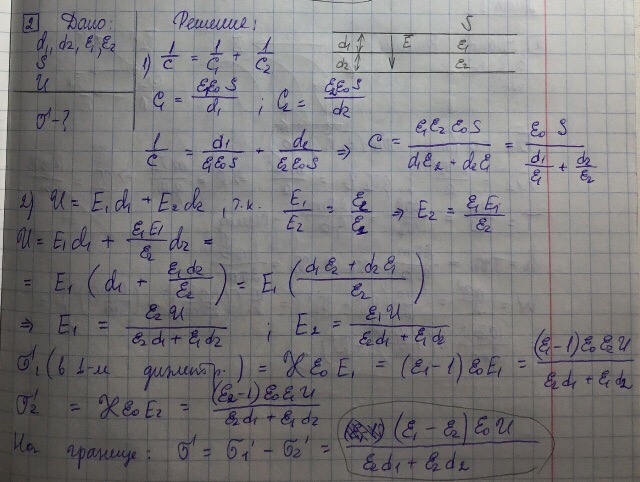 2 Дано: Решение: S
d₁, d₂, ε₁, ε₂ d₁ E ε₁
S 1) 1/C = 1/C₁ + 1/C₂ d₂ ε₂
U
C₁ = ε₁ε₀S/d₁ ; C₂ = ε₂ε₀S/d₂
σ'-?
1/C = d₁/ε₁ε₀S + d₂/ε₂ε₀S ⇒ C = ε₁ε₂ε₀S/(d₁ε₂ + d₂ε₁) = ε₀S/(d₁/ε₁ + d₂/ε₂)
2) U = E₁d₁ + E₂d₂ , т.к. E₁/E₂ = ε₂/ε₂ ⇒ E₂ = ε₁E₁/ε₂
U = E₁d₁ + ε₁E₁/ε₂ d₂ =
= E₁ (d₁ + ε₁d₂/ε₂) = E₁ ((d₁ε₂ + d₂ε₁)/ε₂)
⇒ E₁ = ε₂U/(ε₂d₁ + ε₁d₂) ; E₂ = ε₁U/(ε₂d₁ + ε₁d₂)
σ'₁ (в 1-м диэлектр.) = ϰε₀E₁ = (ε₁-1)ε₀E₁ = (ε₁-1)ε₀ε₂U/(ε₂d₁ + ε₁d₂)
σ'₂ = ϰε₀E₂ = (ε₂-1)ε₀ε₁U/(ε₂d₁ + ε₁d₂)
На границе: σ' = σ₁' - σ₂' = (ε₁ - ε₂)ε₀U/(ε₂d₁ + ε₂d₂)